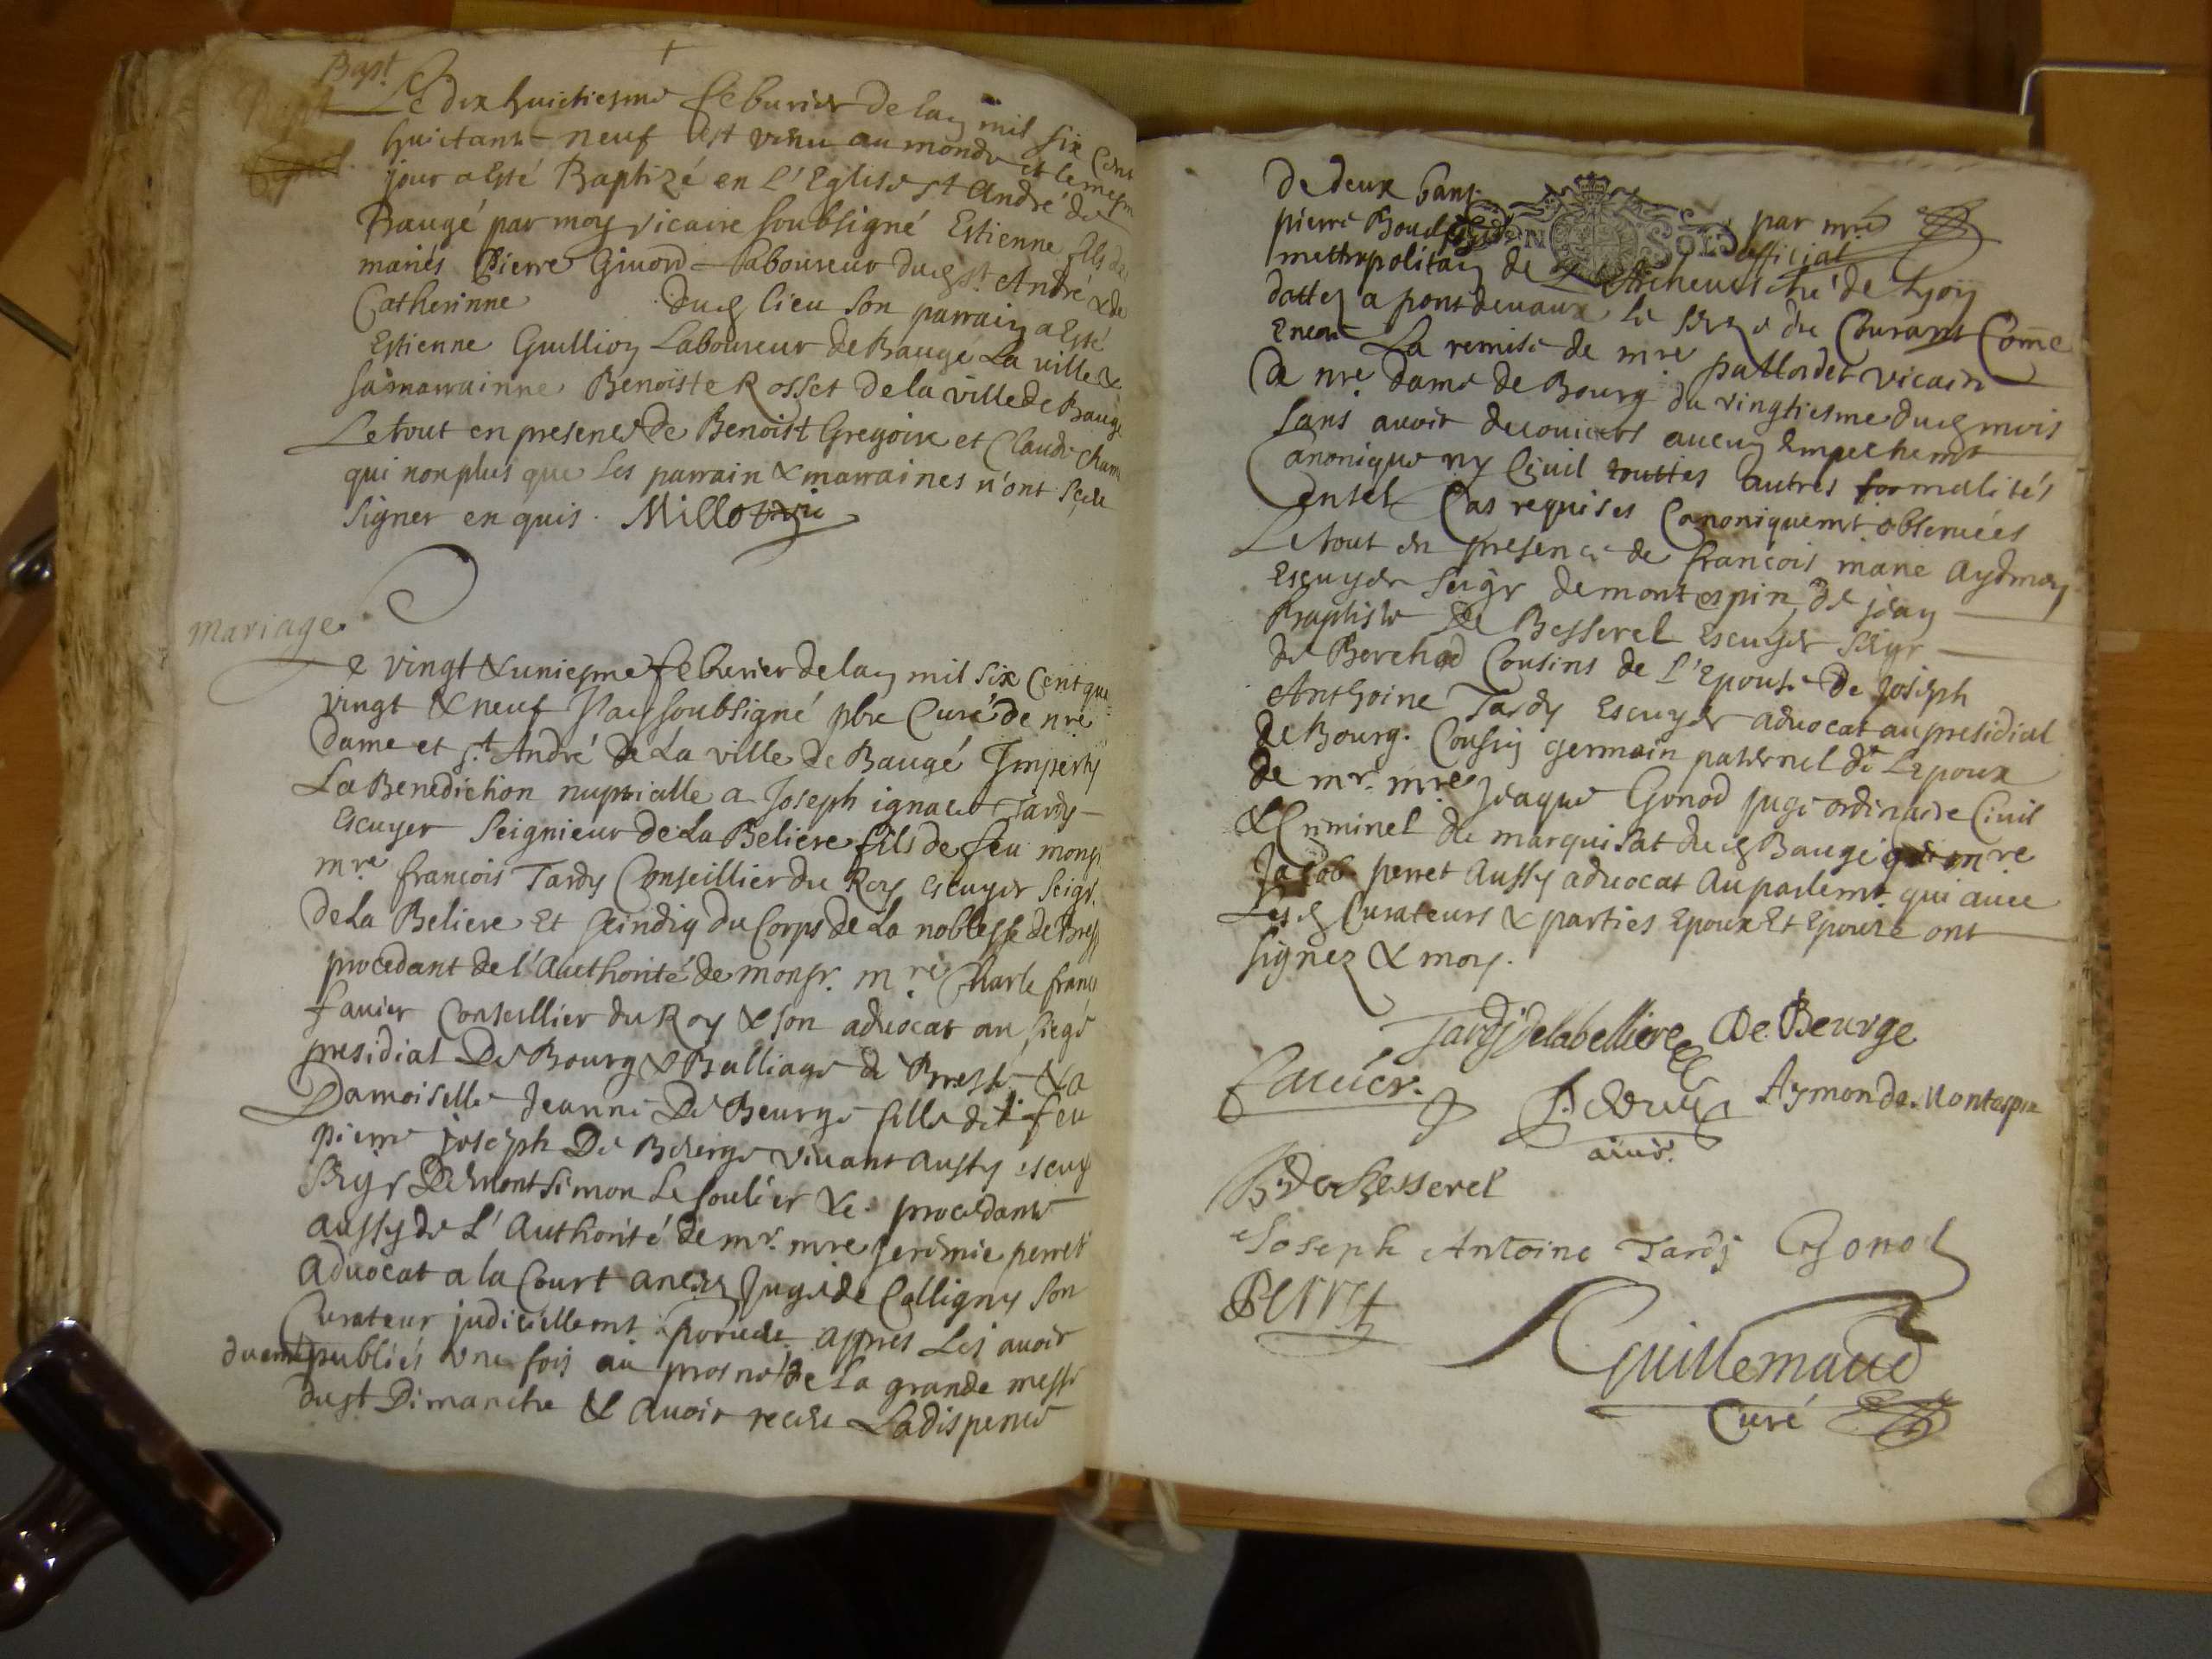 Bapt
Le dix huictiesme feburier de lan mil six Cent
huictante neuf est venu au monde et le mesm
jour a esté Baptizé en l'Eglise st André de
Baugé par moy vicaire soubsigné Estienne fils de
mariés Pierre Giuord Laboureur dud st André & de
Catherinne dud lieu son parrain a esté
Estienne Guillion Laboureur de Baugé La ville &
sa marrainne Benoiste Rosset de la ville de Baugé
Le tout en presence de Benoist Gregoire et Claude Cham
qui non plus que les parrain & marraines n'ont sceu
signer enquis. Millot vic
mariage
Le vingt & uniesme feburier de lan mil six Cent qua
vingt & neuf Jay soubsigné pbre Curé de nre
dame et st André de La ville de Baugé Imperty
La Benediction nuptialle a Joseph ignace Tardy
Escuyer Seignieur de La Beliere fils de feu monsr
mre françois Tardy Conseillier du Roy escuyer seigr
de La Beliere Et scindiq du Corps de La noblesse de Bress
procedant de l'Authorité de monsr. mre Charle franç
fauier Conseillier du Roy & son aduocat au siege
presidial De Bourg & Balliage de Bresse & a
Damoiselle Jeanne De Beurge fille de feu
pierre joseph De Beurge viuant aussy escuy
seigr De montsimon Le soulier &c. procedante
aussy de L'Authorité de mr. mre Jeremie perret
Aduocat a la Court ancien Juge de Colligny son
Curateur judiciellemt. poruele appres Les auoir
duemt publiés une fois au prosne de La grande messe
dust Dimanche & auoir receu La dispence
de deux bans par mre
pierre official
mettropolitain de L'Archeuesché de Lyon
datté a pontdevaux le du Courant Comē
encor La remise de mre pallordet vicaire
de nre dame de Bourg du vingtiesme dud mois
sans auoir decouuert aucun Empechemt
Canonique ny Ciuil touttes autres formalités
En tel Cas requises Canoniquemt obseruées
Le tout en presence de françois marie Aydmon
Escuyer seigr de montespin, de jean
Baptiste De Besserel Escuyer seigr
de Berchod Cousins de L'Epouse De Joseph
Anthoine Tardy Escuyer aduocat au presidial
de Bourg. Cousin germain paternel de Lepoux
de mr. mre Jeaque Gonod juge ordinaire Ciuil
& Criminel du marquisat dud Baugé & mre
Jacob perret Aussy aduocat Au parlemt. qui auec
Lesd Curateurs & parties Epoux Et Epouse ont
signez & moy.
Tardy delabelliere De Beurge
fauier. Aymon de Montespin
B. de Besserel
Joseph Antoine Tardy Gonod
Perret
Guillemaud
Curé